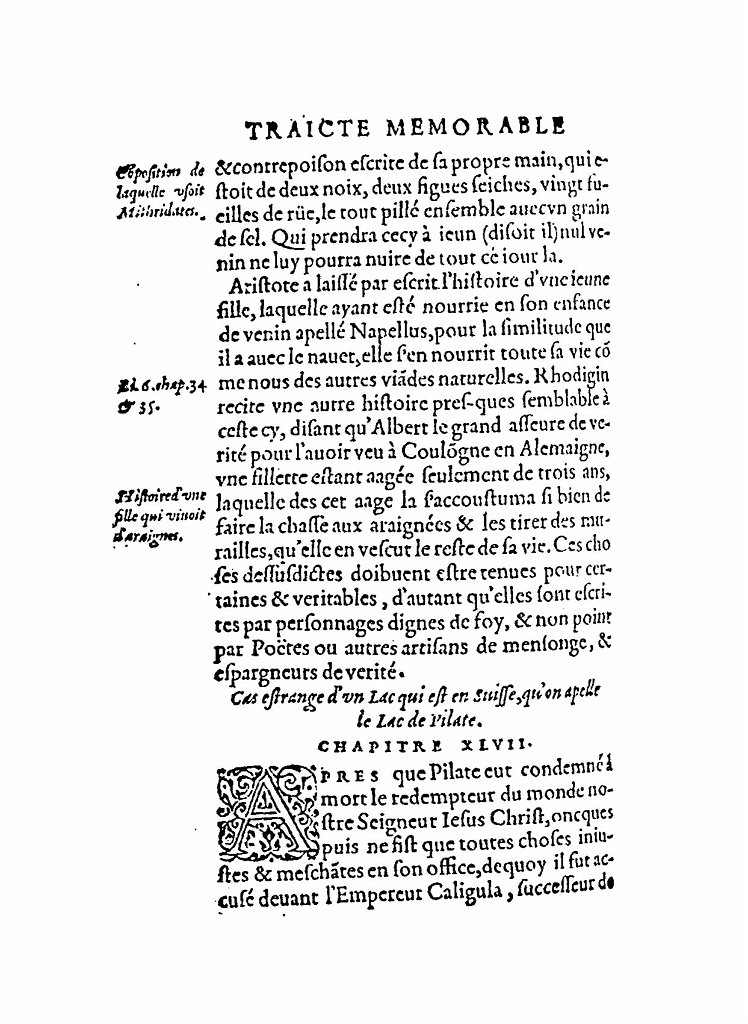 TRAICTE MEMORABLE
Cōposition de
laquelle vsoit
Mithridates.
&contrepoiſon eſcrite de ſa propre main, qui e-
ſtoit de deux noix, deux figues ſeiches, vingt fu-
eilles de rüe, le tout pillé enſemble auecvn grain
de ſel. Qui prendra cecy à ieun (diſoit il) nul ve-
nin ne luy pourra nuire de tout cé iour la.
Ariſtote a laiſſé par eſcrit l'hiſtoire d'vne ieune
fille, laquelle ayant eſté nourrie en ſon enfance
de venin apellé Napellus, pour la ſimilitude que
il a auec le nauet, elle ſ'en nourrit toute ſa vie cō
me nous des autres viādes naturelles. Rhodigin
recite vne autre hiſtoire preſ-ques ſemblable à
ceſte cy, diſant qu'Albert le grand aſſeure de ve-
rité pour l'auoir veu à Coulōgne en Alemaigne,
vne fillette eſtant aagée ſeulement de trois ans,
laquelle des cet aage la ſ'accouſtuma ſi bien de
faire la chaſſe aux araignées & les tirer des mu-
railles, qu'elle en veſcut le reſte de ſa vie. Ces cho
ſes deſſuſdictes doibuent eſtre tenues pour cer-
taines & veritables, d'autant qu'elles ſont eſcri-
tes par perſonnages dignes de foy, & non point
par Poëtes ou autres artiſans de menſonge, &
eſpargneurs de verité.
Li. 6. chap. 34
& 35.
Hiſtoire d'vne
fille qui viuoit
d'araignes.
Cas eſtrange d'vn Lac qui eſt en Suiſſe, qu'on apelle
le Lac de Pilate.
CHAPITRE XLVII.
APRES que Pilate eut condemné à
mort le redempteur du monde no-
ſtre Seigneur Ieſus Chriſt, oncques
puis ne fiſt que toutes choſes iniu-
ſtes & meſchātes en ſon office, dequoy il fut ac-
cuſé deuant l'Empereur Caligula, ſucceſſeur de